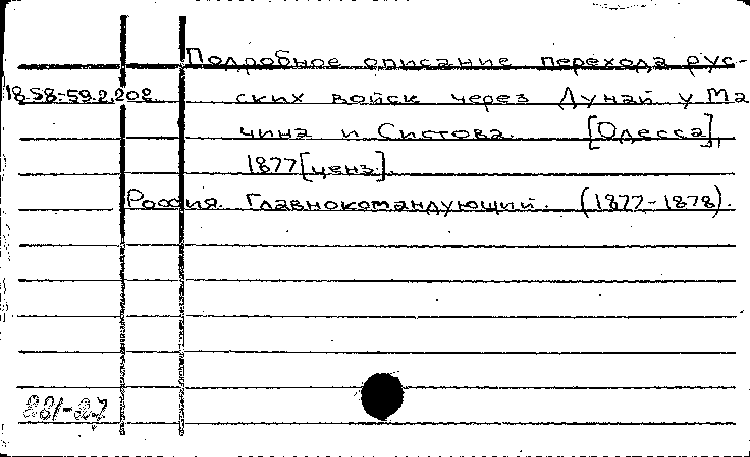 Подробное описание перехода рус-
18.58-59.2.202 ских войск через Дунай у Ма
чина и Систова. [Одесса],
1877[ценз].
Россия. Главнокомандующий. (1877-1878).
281-27